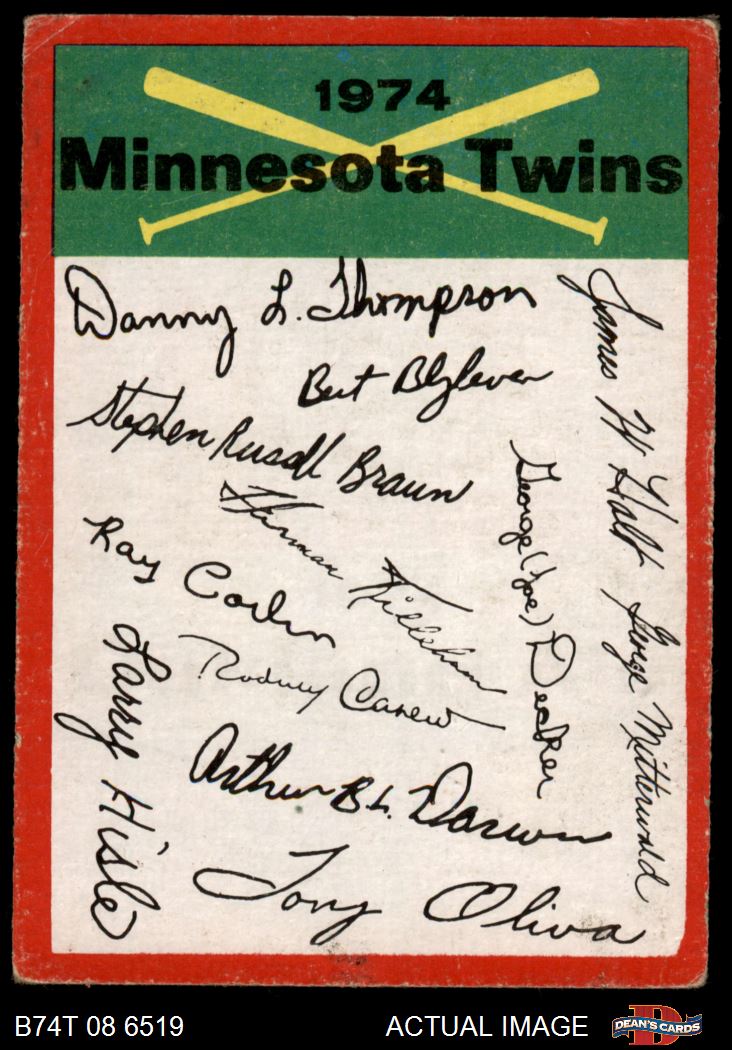 1974
Minnesota Twins
Danny L. Thompson
Bert Blyleven
Stephen Russell Braun
Harman Killebrew
Ray Corbin
Rodney Carew
Larry Hisle
Arthur B.L. Darwin
Tony Oliva
George (Joe) Decker
James W Holt
George Mitterwald
B74T 08 6519
ACTUAL IMAGE
D
DEAN'S CARDS